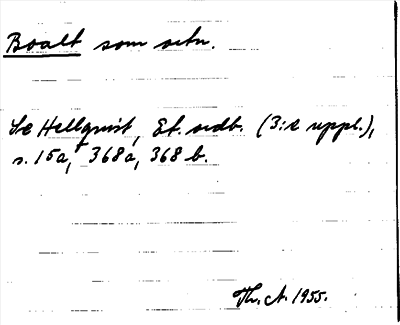 Boalt som ortn.
Se Hellquist, Et. ordb. (3:e uppl.),
s. 15a, 368a, 368 b.
Th. A. 1955.